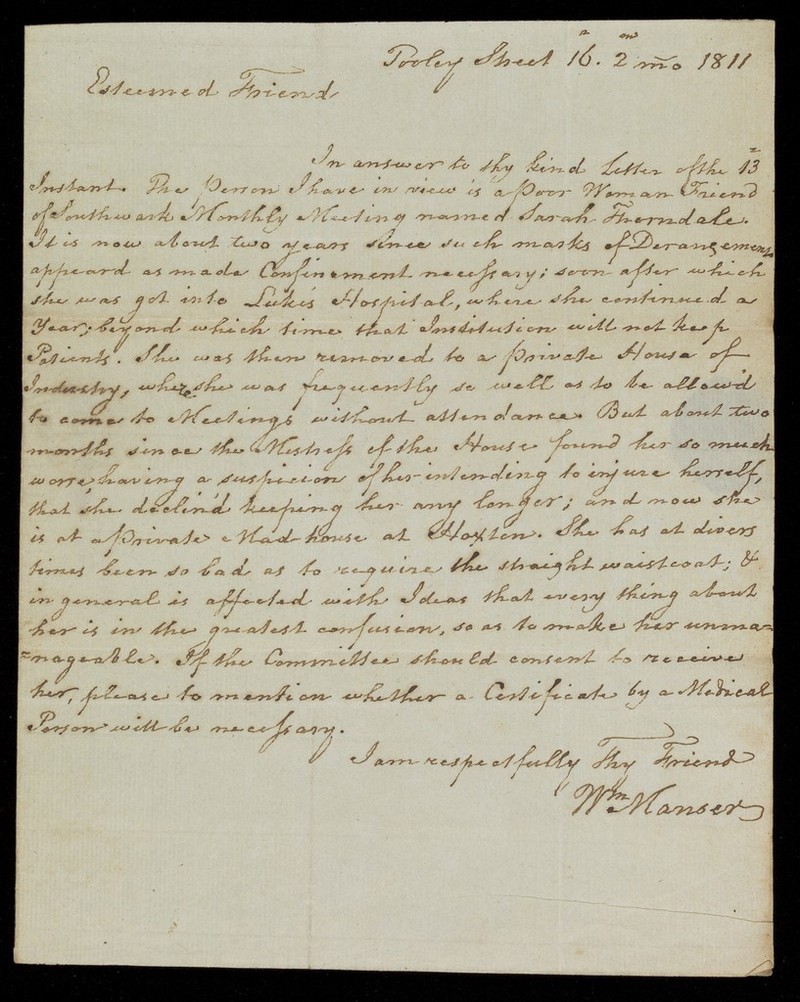 Tooley Street 16. 2 mo 1811
Esteemed Friend
In answer to thy kind Letter of the 13
Instant. The Person I have in view is a poor Woman Friend
of Southwark Monthly Meeting named Sarah Thorndale.
It is now about two years since such marks of Derangement
appeard as made Confinement necessary; soon after which
she was got into Luke's Hospital, where she continued a
Year; beyond which time that Institution will not keep
Patients. She was then removed to a private House of
Industry, where she was frequently so well as to be allow'd
to come to Meetings without attendance. But about two
months since the Mistress of the House found her so much
worse, having a suspicion of her intending to injure herself,
that she declin'd keeping her any longer; and now she
is at a private Mad-house at Hoxton. She has at divers
times been so bad as to require the straight waistcoat; &
in general is affected with Ideas that every thing about
her is in the greatest confusion, so as to make her unma=
=nageable. If the Committee should consent to receive
her, please to mention whether a Certificate by a Medical
Person will be necessary.
I am respectfully Thy Friend
Wm Manser